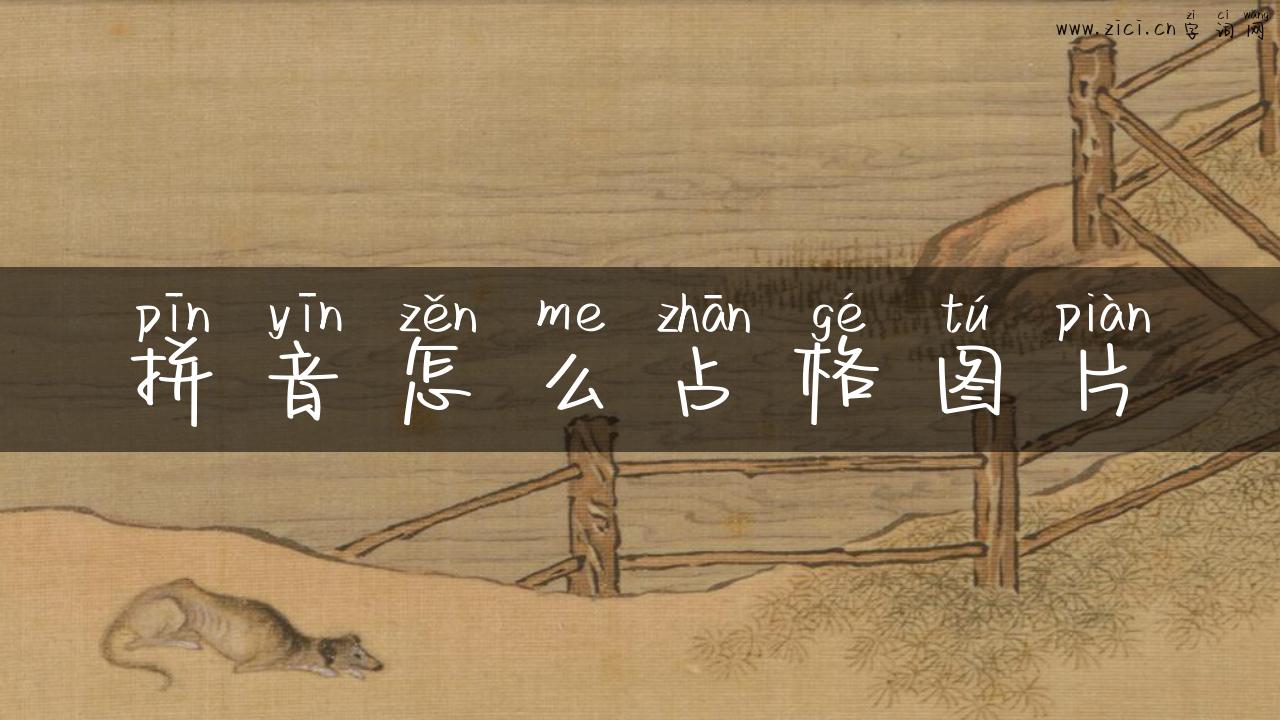 zi ci wang
www.zici.cn字词网
pīn yīn zěn me zhān gé tú piàn
拼音怎么占格图片